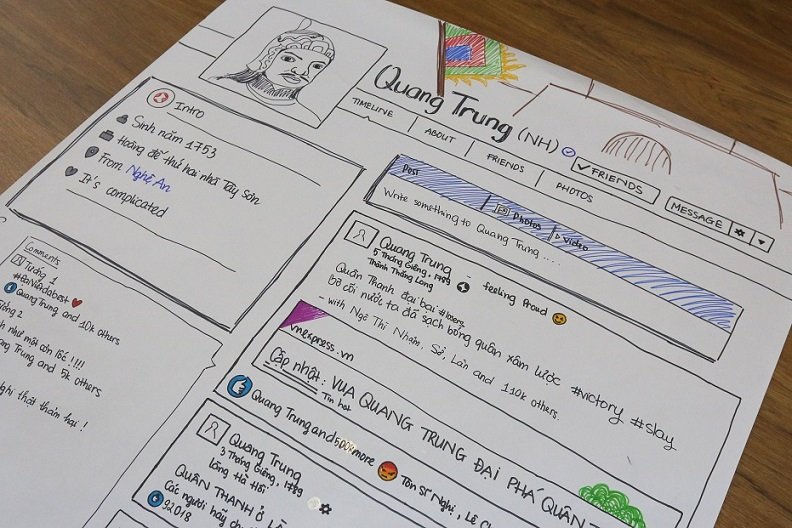 Quang Trung (NH)
TIMELINE
ABOUT
FRIENDS
PHOTOS
✓ FRIENDS
MESSAGE
Intro
Sinh năm 1753
Hoàng đế thứ hai nhà Tây Sơn
From Nghệ An
It's complicated
Post
Photos
Video
Write something to Quang Trung ....
Quang Trung - feeling Proud
5 Tháng Giêng, 1789
Thành Thăng Long
Quân Thanh đại bại #losers
bờ cõi nước ta đã sạch bóng quân xâm lược #victory #slay
- with Ngô Thì Nhậm, Sở, Lân and 110k others.
vnexpress.vn
Cập nhật: VUA QUANG TRUNG ĐẠI PHÁ QUÂN
Tin hot
Quang Trung and 5008 more
Tôn Sĩ Nghị, Lê
Quang Trung
3 Tháng Giêng, 1789
Làng Hà Hồi
QUÂN THANH Ở
Các người hãy
92018
Comments
Tướng 1
Quang Trung and 10k others
như một cơn lốc !!!!
Trung and 5k others
thật thảm hại !